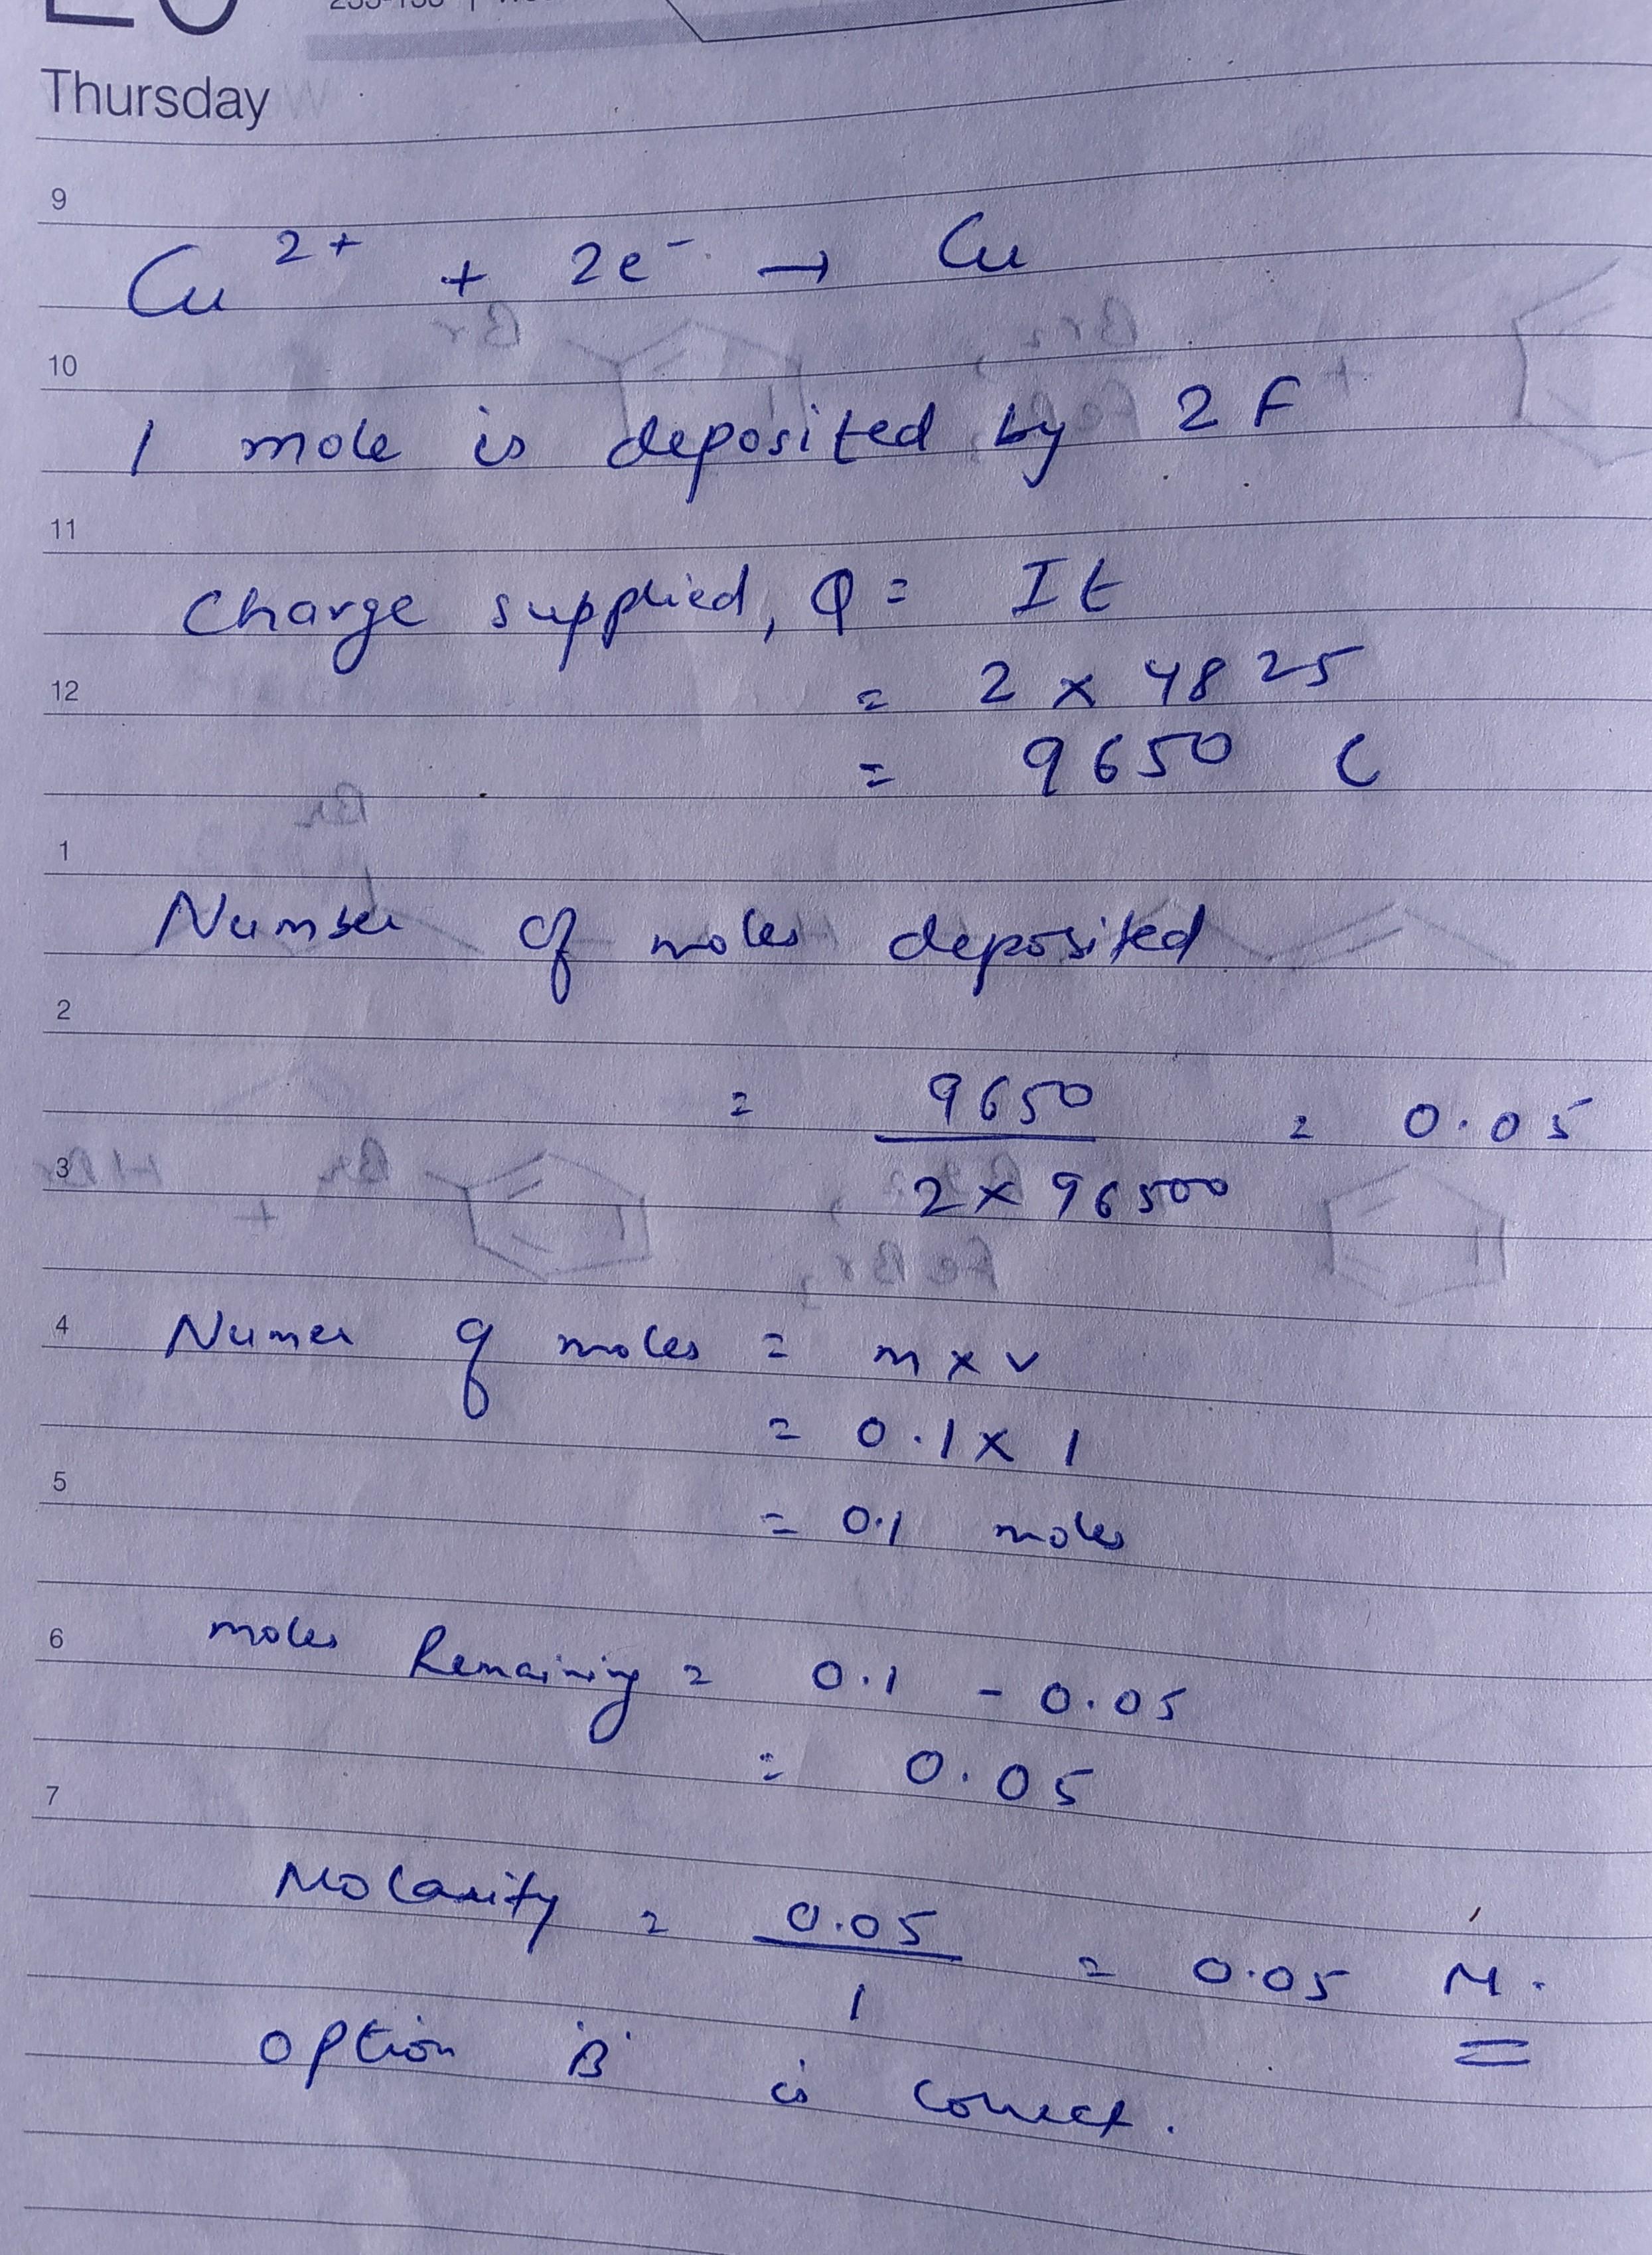 Thursday
9
Cu 2+ + 2e- → Cu
10
1 mole is deposited by 2 F
11
Charge supplied, Q = It
12
= 2 x 4825
= 9650 C
1
Number of moles deposited
2
= 9650 / 2 x 96500 = 0.05
3
4
Numer of moles = m x v
= 0.1 x 1
5
= 0.1 moles
6
moles Remaining = 0.1 - 0.05
= 0.05
7
Molarity = 0.05 / 1 = 0.05 M.
option B is correct.